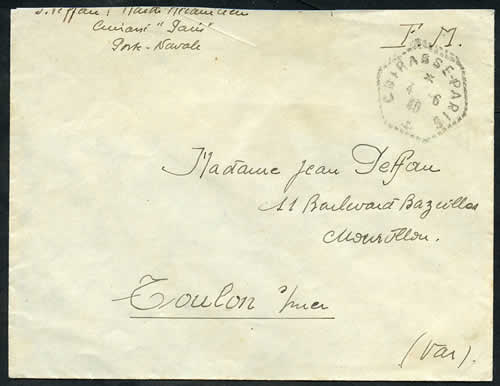 J. Deffau / Maître Mécanicien
Cuirassé "Paris"
Poste-Navale
F. M.
CUIRASSÉ-PARIS
4 - 6
40
Madame Jean Deffau
11 Boulevard Bazeilles
Mourillon.
Toulon s/mer
(Var).